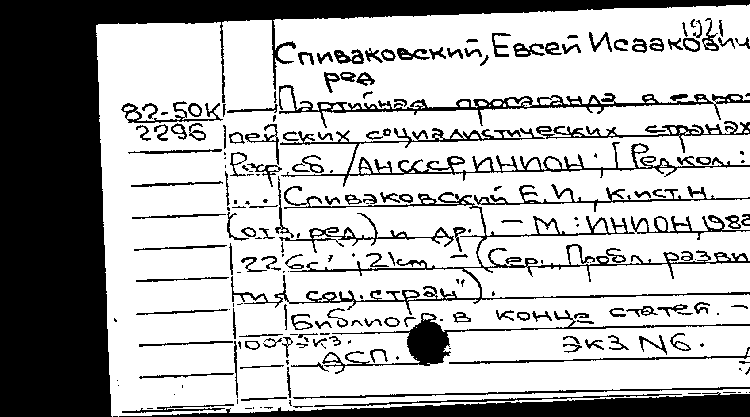 1921
Спиваковский, Евсей Исаакович
ред
82-50К Партийная пропаганда в евро
2296 пейских социалистических странах
Реф. сб. / АН СССР, ИНИОН; [Редкол.:
... Спиваковский Е.И., к.ист.н.
(отв. ред.) и др.]. - М.: ИНИОН, 1982
226с.; 21 cm. - (Сер., Пробл. разви
тия соц. стран").
Библиогр. в конце статей. -
1000экз.
ДСП. Экз N6.